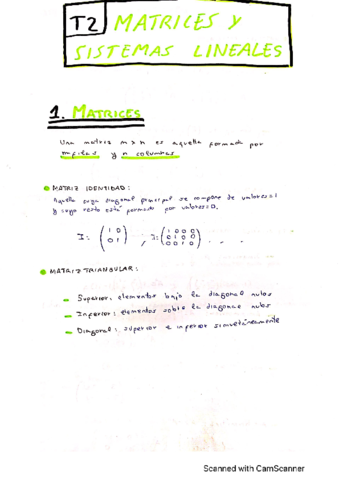 T2 MATRICES Y
SISTEMAS LINEALES
1. MATRICES
Una matriz m x n es aquella formada por
m filas y n columnas
MATRIZ IDENTIDAD:
Aquella cuya diagonal principal se compone de valores=1
y cuyo resto está formado por valores=0.
I: (1 0
0 1) , I: (1 0 0 0
0 1 0 0
0 0 1 0) . . .
MATRIZ TRIANGULAR:
- Superior: elementos bajo la diagonal nulos
- Inferior: elementos sobre la diagonal nulos
- Diagonal: superior e inferior simultáneamente
Scanned with CamScanner